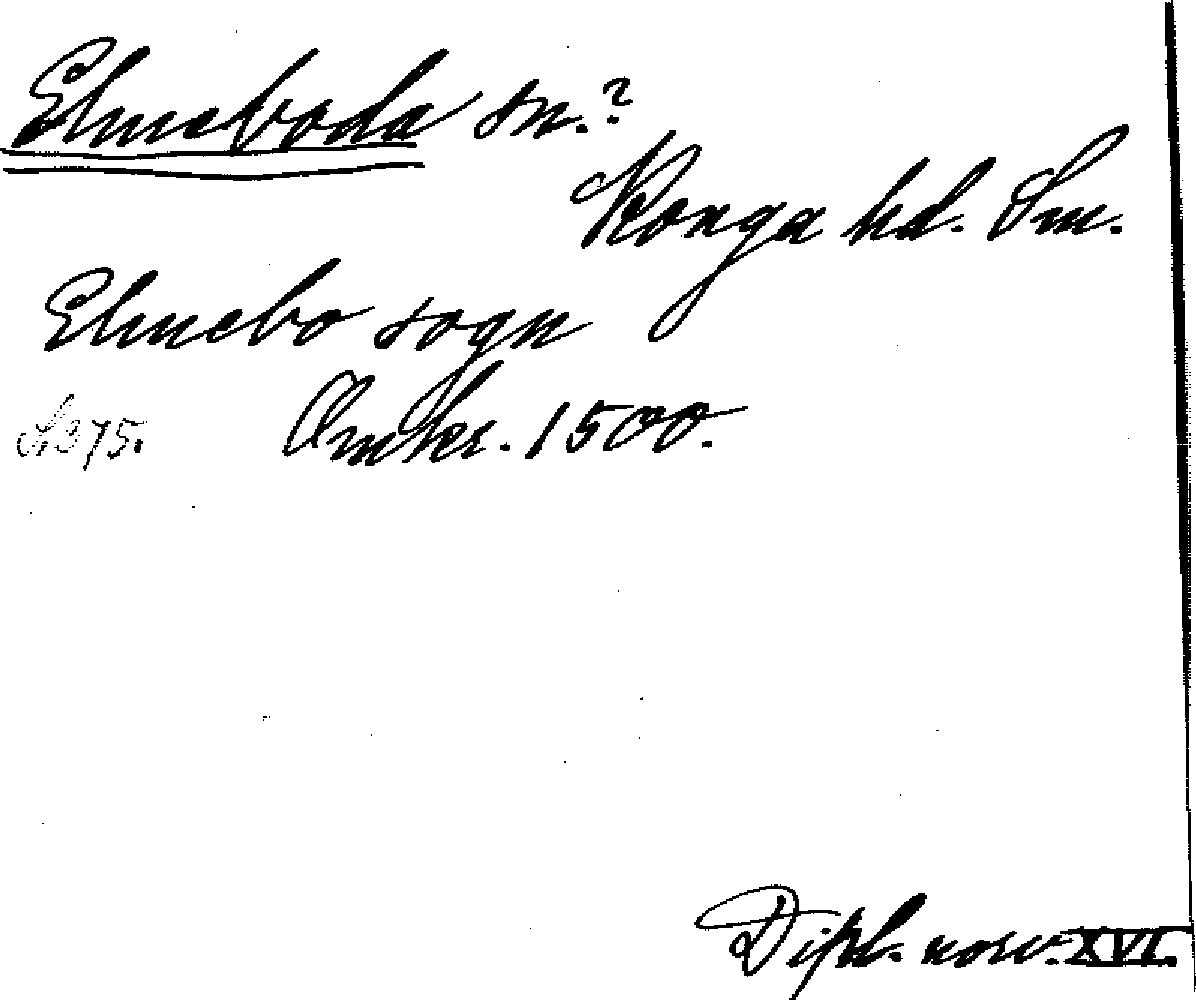 Elmeboda sn.?
Konga hd. Sm.
Elmebo sogn
S. 375. Omkr. 1500.
Dipl. norv. XVI.